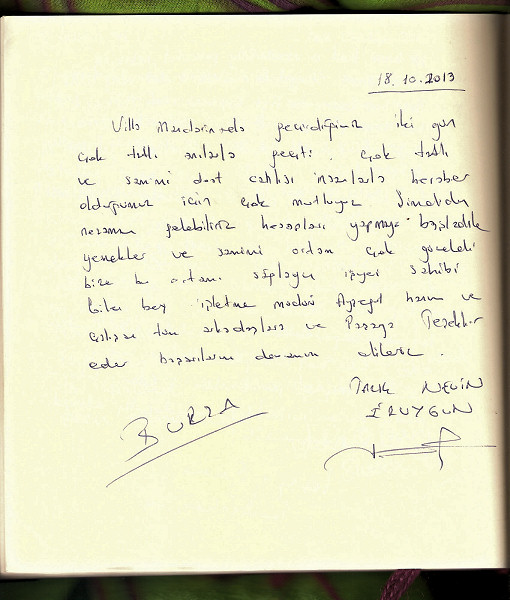 18.10.2013
Villa Mandarinada geçirdiğimiz iki gün
çok tatlı anılarla geçti. Çok tatlı
ve samimi dost canlısı insanlarla beraber
olduğumuz için çok mutluyuz Şimdiden
ne zaman gelebiliriz hesapları yapmaya başladık
yemekler ve samimi ortam çok güzeldi
bize bu ortamı sağlayan işyeri sahibi
bey işletme müdürü Ayşegül hanım ve
çalışan tüm arkadaşlara ve Teşekkür
eder başarılarının devamını dileriz.
NEVİN
BURSA